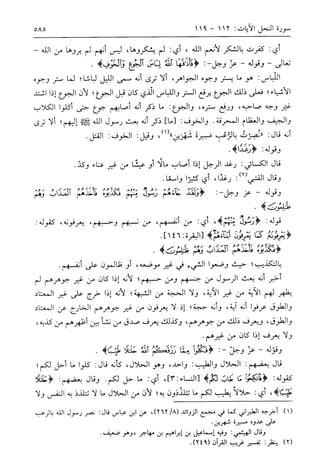 سورة النحل الآيات: ١١٢ - ١١٩ ٥٨٥
أي: كفرت بالشكر لأنعم الله، أي: لم يشكروها، ليس أنهم لم يروها من الله -
تعالى - وقوله - عزّ وجل -: ﴿فَأَذَاقَهَا اللَّهُ لِبَاسَ الْجُوعِ وَالْخَوْفِ﴾.
اللباس: هو ما يستر وجوه الجواهر، ألا ترى أنه سمى الليل لباسًا؛ لما ستر وجوه
الأشياء؛ فعلى ذلك الجوع يرفع الستر واللباس الذي كان قبل الجوع؛ لأن الجوع إذا اشتد
غير وجه صاحبه، ورفع ستره، والجوع: ما ذكر أنه أصابهم جوع حتى أكلوا الكلاب
والجيف والعظام المحرقة. والخوف: [ما] ذكر أنه بعث رسول الله ﷺ إليهم؛ ألا ترى
أنه قال: «نُصِرْتُ بالرُّعْبِ مَسِيرَةَ شَهْرَيْنِ»(١)، وقيل: الخوف: القتل.
وقوله: ﴿رَغَدًا﴾.
قال الكسائي: رغد الرجل إذا أصاب مالًا أو عيشًا من غير عناء وكدّ.
وقال القتبي(٢): رغدًا، أي كثيرًا واسعًا.
وقوله - عز وجل -: ﴿وَلَقَدْ جَاءَهُمْ رَسُولٌ مِنْهُمْ فَكَذَّبُوهُ فَأَخَذَهُمُ الْعَذَابُ وَهُمْ
ظَالِمُونَ﴾.
قوله: ﴿رَسُولٌ مِنْهُمْ﴾، أي: من أنفسهم، من نسبهم وحسبهم، يعرفونه، كقوله:
﴿يَعْرِفُونَهُ كَمَا يَعْرِفُونَ أَبْنَاءَهُمْ﴾ [البقرة: ١٤٦].
﴿فَكَذَّبُوهُ فَأَخَذَهُمُ الْعَذَابُ وَهُمْ ظَالِمُونَ﴾.
بالتكذيب؛ حيث وضعوا الشيء في غير موضعه، أو ظالمون على أنفسهم.
أخبر أنه بعث الرسول من جنسهم ومن حسبهم؛ لأنه إذا كان من غير جوهرهم لم
يظهر لهم الآية من غير الآية، ولا الحجة من الشبهة؛ لأنه إذا خرج على غير المعتاد
والطوق عرفوا أنه آية، وأنه حجة؛ إذ لا يعرفون من غير جوهرهم الخارج عن المعتاد
والطوق، ويعرف ذلك من جوهرهم، وكذلك يعرف صدق من نشأ بين أظهرهم من كذبه،
ولا يعرف إذا كان من غيرهم.
وقوله - عز وجل -: ﴿فَكُلُوا مِمَّا رَزَقَكُمُ اللَّهُ حَلَالًا طَيِّبًا﴾.
قال بعضهم: الحلال والطيب: واحد، وهو الحلال، كأنه قال: كلوا ما أحل لكم؛
كقوله: ﴿فَانْكِحُوا مَا طَابَ لَكُمْ﴾ [النساء: ٣]، أي: ما حل لكم. وقال بعضهم: ﴿حَلَالًا
طَيِّبًا﴾، أي: حلالًا يطيب لكم ما تتلذذون به؛ لأن من الحلال ما لا تتلذذ به النفس ولا
(١) أخرجه الطبراني كما في مجمع الزوائد (٢٦٢/٨)، عن ابن عباس قال: نصر رسول الله بالرعب
على عدوه مسيرة شهرين.
وقال الهيثمي: وفيه إسماعيل بن إبراهيم بن مهاجر، وهو ضعيف.
(٢) ينظر: تفسير غريب القرآن (٢٤٩).